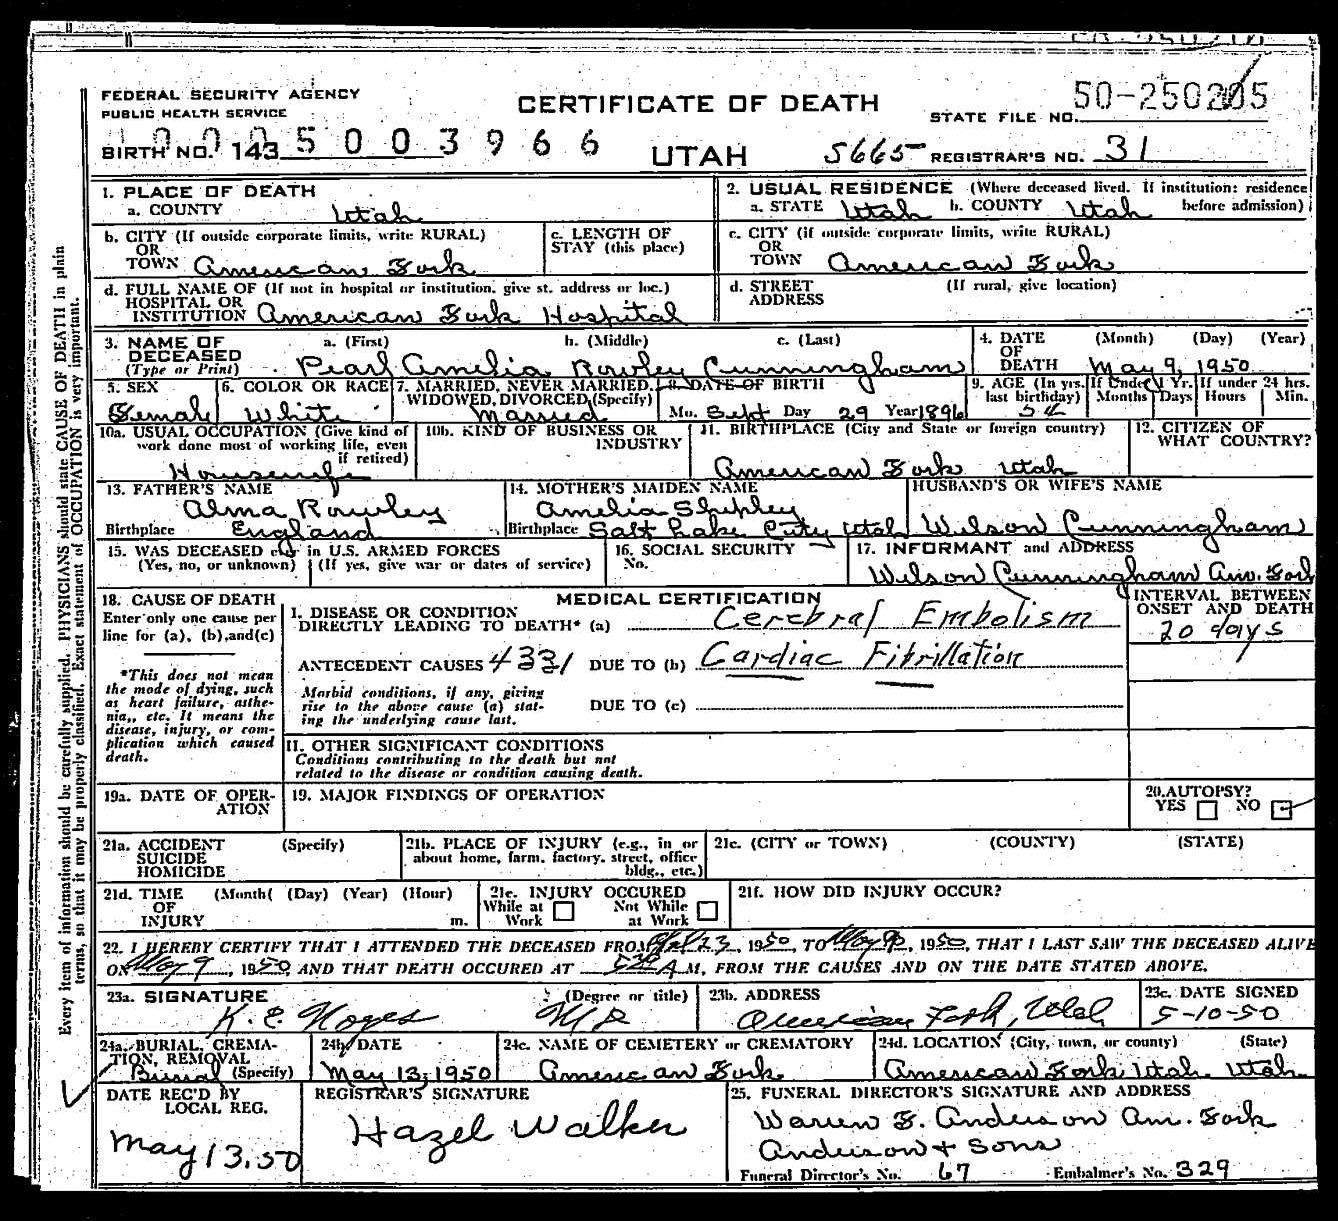 FEDERAL SECURITY AGENCY
PUBLIC HEALTH SERVICE
CERTIFICATE OF DEATH
50-250205
STATE FILE NO.
BIRTH NO. 143
5003966
UTAH
5665 REGISTRAR'S NO. 31
1. PLACE OF DEATH
a. COUNTY Utah
2. USUAL RESIDENCE (Where deceased lived. If institution: residence before admission)
a. STATE Utah b. COUNTY Utah
b. CITY (If outside corporate limits, write RURAL)
OR
TOWN American Fork
c. LENGTH OF
STAY (this place)
c. CITY (if outside corporate limits, write RURAL)
OR
TOWN American Fork
d. FULL NAME OF (If not in hospital or institution, give st. address or loc.)
HOSPITAL OR
INSTITUTION American Fork Hospital
d. STREET (If rural, give location)
ADDRESS
3. NAME OF a. (First) b. (Middle) c. (Last)
DECEASED
(Type or Print) Pearl Amelia Rowley Cunningham
4. DATE (Month) (Day) (Year)
OF
DEATH May 9, 1950
5. SEX
Female
6. COLOR OR RACE
White
7. MARRIED, NEVER MARRIED,
WIDOWED, DIVORCED (Specify)
Married
8. DATE OF BIRTH
Mo. Sept Day 29 Year 1896
9. AGE (In yrs. last birthday) If Under 1 Yr. Months Days If under 24 hrs. Hours Min.
10a. USUAL OCCUPATION (Give kind of
work done most of working life, even
if retired)
Housewife
10b. KIND OF BUSINESS OR
INDUSTRY
11. BIRTHPLACE (City and State or foreign country)
American Fork Utah
12. CITIZEN OF
WHAT COUNTRY?
13. FATHER'S NAME
Alma Rowley
Birthplace England
14. MOTHER'S MAIDEN NAME
Amelia Shipley
Birthplace Salt Lake City Utah
HUSBAND'S OR WIFE'S NAME
Wilson Cunningham
15. WAS DECEASED ever in U.S. ARMED FORCES
(Yes, no, or unknown) (If yes, give war or dates of service)
16. SOCIAL SECURITY
No.
17. INFORMANT and ADDRESS
Wilson Cunningham Am. Fork
18. CAUSE OF DEATH
Enter only one cause per
line for (a), (b), and (c)
*This does not mean
the mode of dying, such
as heart failure, asthe-
nia, etc. It means the
disease, injury, or com-
plication which caused
death.
MEDICAL CERTIFICATION
I. DISEASE OR CONDITION
DIRECTLY LEADING TO DEATH* (a) Cerebral Embolism
ANTECEDENT CAUSES 4331 DUE TO (b) Cardiac Fibrillation
Morbid conditions, if any, giving
rise to the above cause (a) stat-
ing the underlying cause last.
DUE TO (c)
INTERVAL BETWEEN
ONSET AND DEATH
20 days
II. OTHER SIGNIFICANT CONDITIONS
Conditions contributing to the death but not
related to the disease or condition causing death.
19a. DATE OF OPER-
ATION
19. MAJOR FINDINGS OF OPERATION
20. AUTOPSY?
YES NO
21a. ACCIDENT (Specify)
SUICIDE
HOMICIDE
21b. PLACE OF INJURY (e.g., in or
about home, farm, factory, street, office
bldg., etc.)
21c. (CITY or TOWN) (COUNTY) (STATE)
21d. TIME (Month) (Day) (Year) (Hour)
OF
INJURY m.
21e. INJURY OCCURED
While at Work Not While at Work
21f. HOW DID INJURY OCCUR?
22. I HEREBY CERTIFY THAT I ATTENDED THE DECEASED FROM 23, 1950, TO May 9, 1950, THAT I LAST SAW THE DECEASED ALIVE
ON May 9, 1950 AND THAT DEATH OCCURED AT A M, FROM THE CAUSES AND ON THE DATE STATED ABOVE.
23a. SIGNATURE (Degree or title)
K. E. Noyes MD
23b. ADDRESS
American Fork, Utah
23c. DATE SIGNED
5-10-50
24a. BURIAL, CREMA-
TION, REMOVAL
Burial (Specify)
24b. DATE
May 13, 1950
24c. NAME OF CEMETERY or CREMATORY
American Fork
24d. LOCATION (City, town, or county) (State)
American Fork Utah Utah
DATE REC'D BY
LOCAL REG.
May 13.50
REGISTRAR'S SIGNATURE
Hazel Walker
25. FUNERAL DIRECTOR'S SIGNATURE AND ADDRESS
Warren F. Anderson Am. Fork
Anderson & Sons
Funeral Director's No. 67 Embalmer's No. 329
Every item of information should be carefully supplied. PHYSICIANS should state CAUSE OF DEATH in plain
terms, so that it may be properly classified. Exact statement of OCCUPATION is very important.